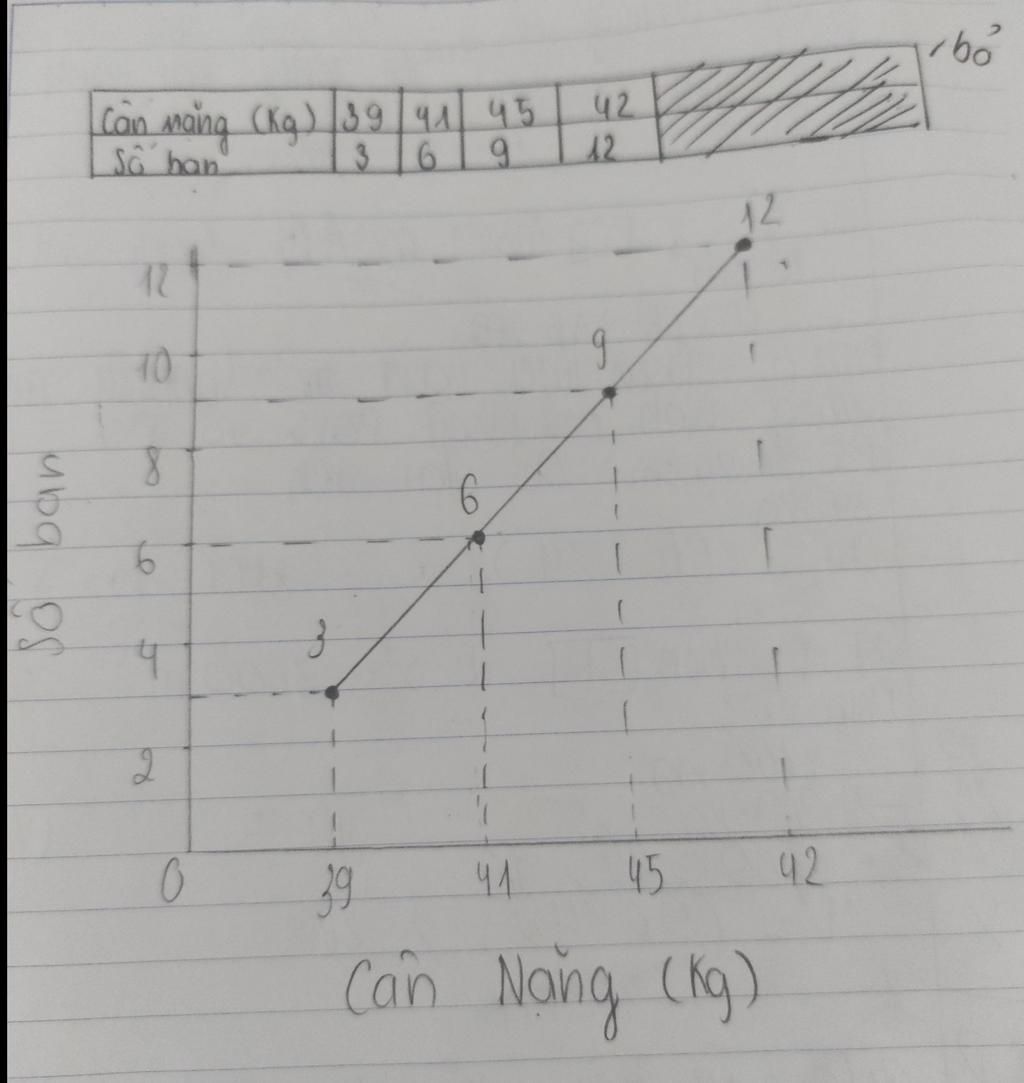 bỏ
Cân nặng (Kg) 39 41 45 42
Số bạn 3 6 9 12
12
12
10
9
8
6
6
3
4
2
Số bạn
0 39 41 45 42
Cân Nặng (Kg)